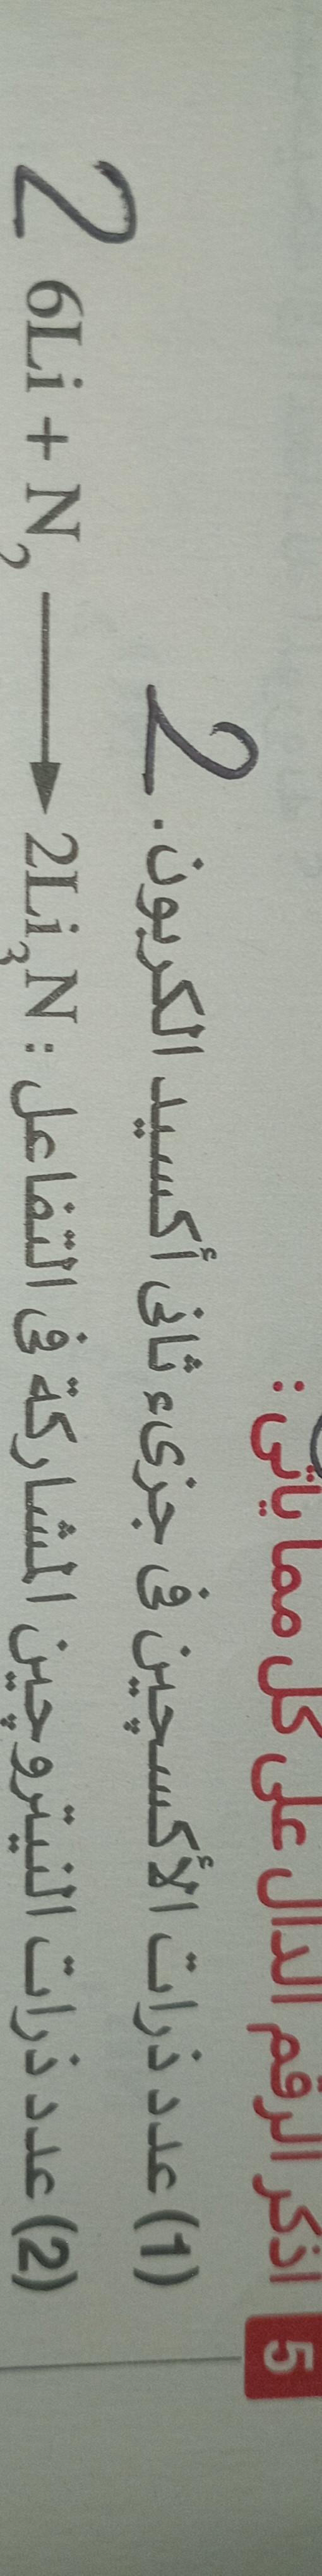 5 اذكر الرقم الدال على كل مما يأتى :
(1) عدد ذرات الأكسچين فى جزىء ثانى أكسيد الكربون. 2
(2) عدد ذرات النيتروچين المشاركة فى التفاعل : 6Li + N₂ ⟶ 2Li₃N 2